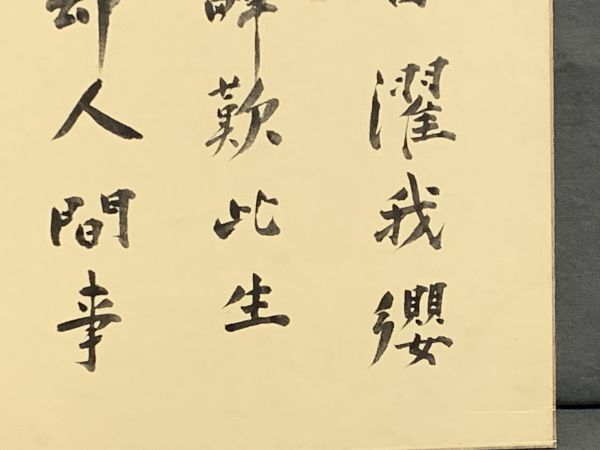 濯我纓
歎此生
却人間事